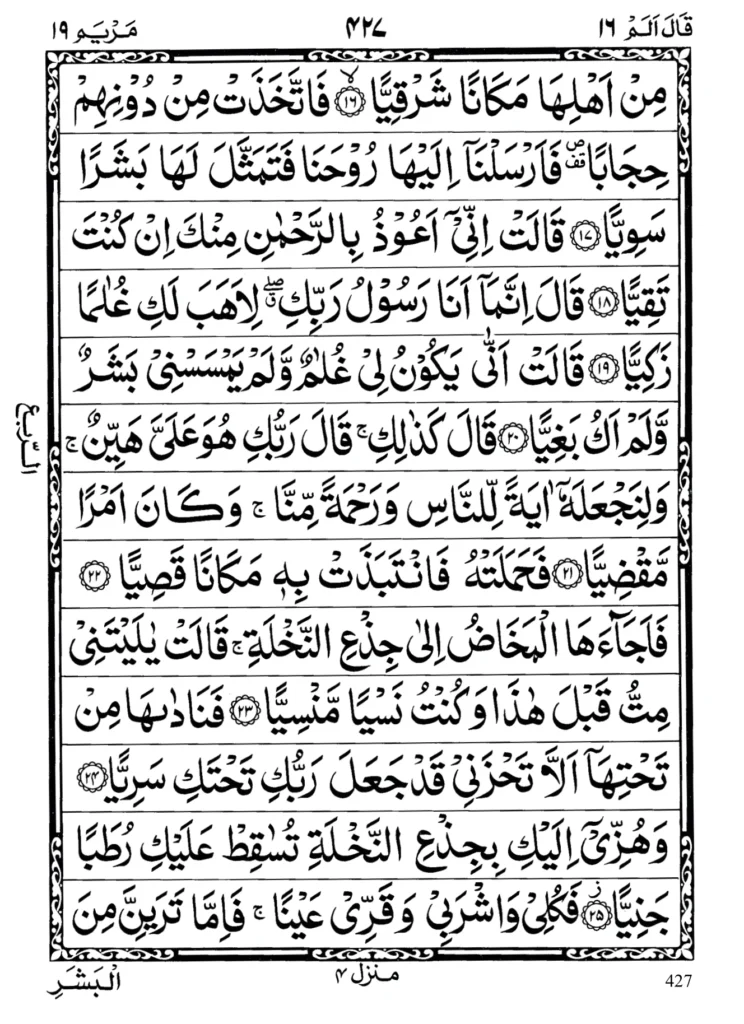 قَالَ اَلَمْ ١٦ ٤٢٧ مَرْيَم ١٩
مِنْ اَهْلِهَا مَكَانًا شَرْقِيًّا ۙ ﴿١٦﴾ فَاتَّخَذَتْ مِنْ دُوْنِهِمْ
حِجَابًا ۪ۖقف فَاَرْسَلْنَاۤ اِلَيْهَا رُوْحَنَا فَتَمَثَّلَ لَهَا بَشَرًا
سَوِيًّا ﴿١٧﴾ قَالَتْ اِنِّيْۤ اَعُوْذُ بِالرَّحْمٰنِ مِنْكَ اِنْ كُنْتَ
تَقِيًّا ﴿١٨﴾ قَالَ اِنَّمَاۤ اَنَا رَسُوْلُ رَبِّكِ ۖق لِاَهَبَ لَكِ غُلٰمًا
زَكِيًّا ﴿١٩﴾ قَالَتْ اَنّٰى يَكُوْنُ لِيْ غُلٰمٌ وَّلَمْ يَمْسَسْنِيْ بَشَرٌ
وَّلَمْ اَكُ بَغِيًّا ﴿٢٠﴾ قَالَ كَذٰلِكِ ۚ قَالَ رَبُّكِ هُوَ عَلَيَّ هَيِّنٌ ۚ
وَلِنَجْعَلَهٗۤ اٰيَةً لِّلنَّاسِ وَرَحْمَةً مِّنَّا ۚ وَكَانَ اَمْرًا
مَّقْضِيًّا ﴿٢١﴾ فَحَمَلَتْهُ فَانْتَبَذَتْ بِهٖ مَكَانًا قَصِيًّا ﴿٢٢﴾
فَاَجَآءَهَا الْمَخَاضُ اِلٰى جِذْعِ النَّخْلَةِ ۚ قَالَتْ يٰلَيْتَنِيْ
مِتُّ قَبْلَ هٰذَا وَكُنْتُ نَسْيًا مَّنْسِيًّا ﴿٢٣﴾ فَنَادٰىهَا مِنْ
تَحْتِهَاۤ اَلَّا تَحْزَنِيْ قَدْ جَعَلَ رَبُّكِ تَحْتَكِ سَرِيًّا ﴿٢٤﴾
وَهُزِّيْۤ اِلَيْكِ بِجِذْعِ النَّخْلَةِ تُسٰقِطْ عَلَيْكِ رُطَبًا
جَنِيًّا ؗ ﴿٢٥﴾ فَكُلِيْ وَاشْرَبِيْ وَقَرِّيْ عَيْنًا ۚ فَاِمَّا تَرَيِنَّ مِنَ
الربع
الْبَشَرِ منزل ٤ 427